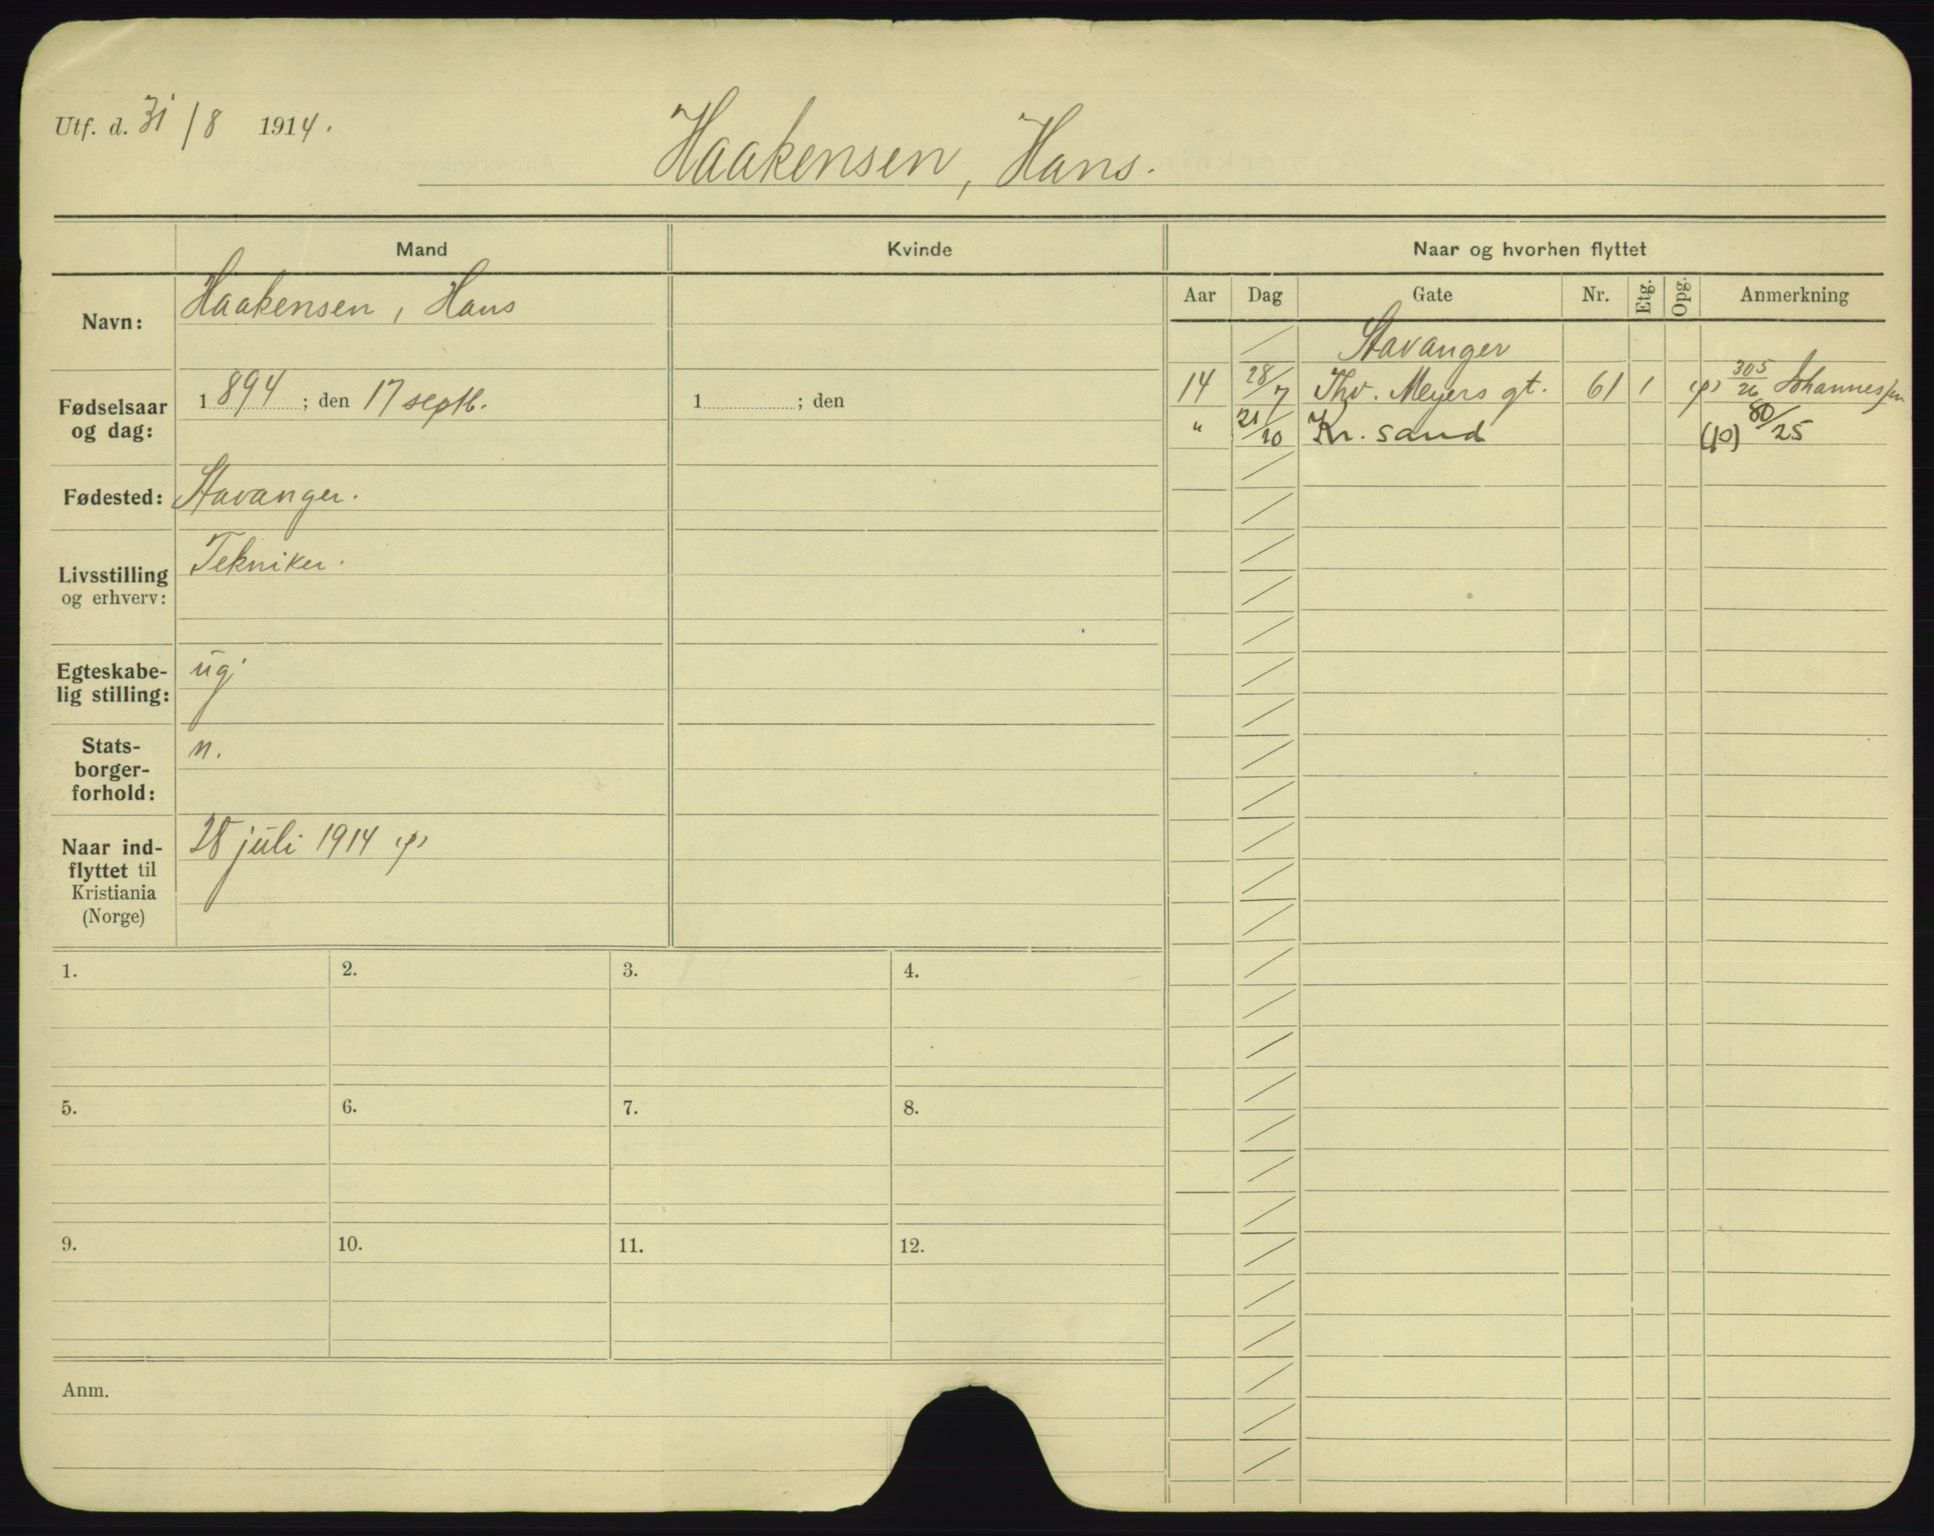 Utf. d. 31/8 1914.
Haakensen, Hans.
Mand
Kvinde
Naar og hvorhen flyttet
Aar Dag Gate Nr. Etg. Opg. Anmerkning
Navn: Haakensen, Hans
Fødselsaar
og dag:
1894; den 17 septb.
1 ; den
Fødested: Stavanger.
Livsstilling
og erhverv:
Tekniker.
Egteskabe-
lig stilling:
ug
Stats-
borger-
forhold:
n.
Naar ind-
flyttet til
Kristiania
(Norge)
28 juli 1914 (p)
Stavanger
14 28/7 Thv. Meyers gt. 61 1 (p) 305/26 Johannessen
" 21/10 Kr. sand 80/25
1. 2. 3. 4.
5. 6. 7. 8.
9. 10. 11. 12.
Anm.